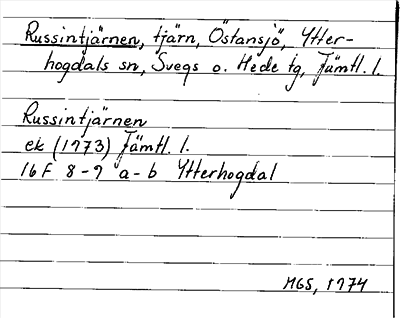 Russintjärnen, tjärn, Östansjö, Ytter-
hogdals sn, Svegs o. Hede tg, Jämtl. l.
Russintjärnen
ek (1973) Jämtl. l.
16F 8-9 a-b Ytterhogdal
MGS, 1974